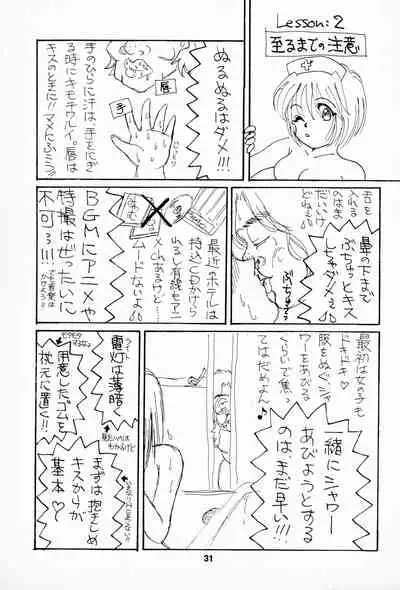 Lesson:2
至るまでの注意
ぬるぬるは
ダメ!!!
唇
手
手のひらに汗は、手をにぎ
る時にキモチワルイ。唇は
キスのときに!!マメにふこう!!
舌を
入れる
のはま
だいいけ
どねぇ
鼻の下まで
ぶちゅっとキス
しちゃダメぇ
最近のホテルは
持込CDかけら
れるし有線もアニ
メchあるけど…
ムードないよ
BGMにアニメや
特撮はぜったいに
不可っ!!!
最初は女の子も
ドキドキ♡
服をぬぐシャ
ワーをあびる
くらいで焦っ
てはだめよん♪
一緒にシャワー
あびようとする
のは、まだ早い!!!
ライト
電灯は薄暗く
用意したゴムを
枕元に置く!!
まずは抱きしめ
キスからが
基本♡
31